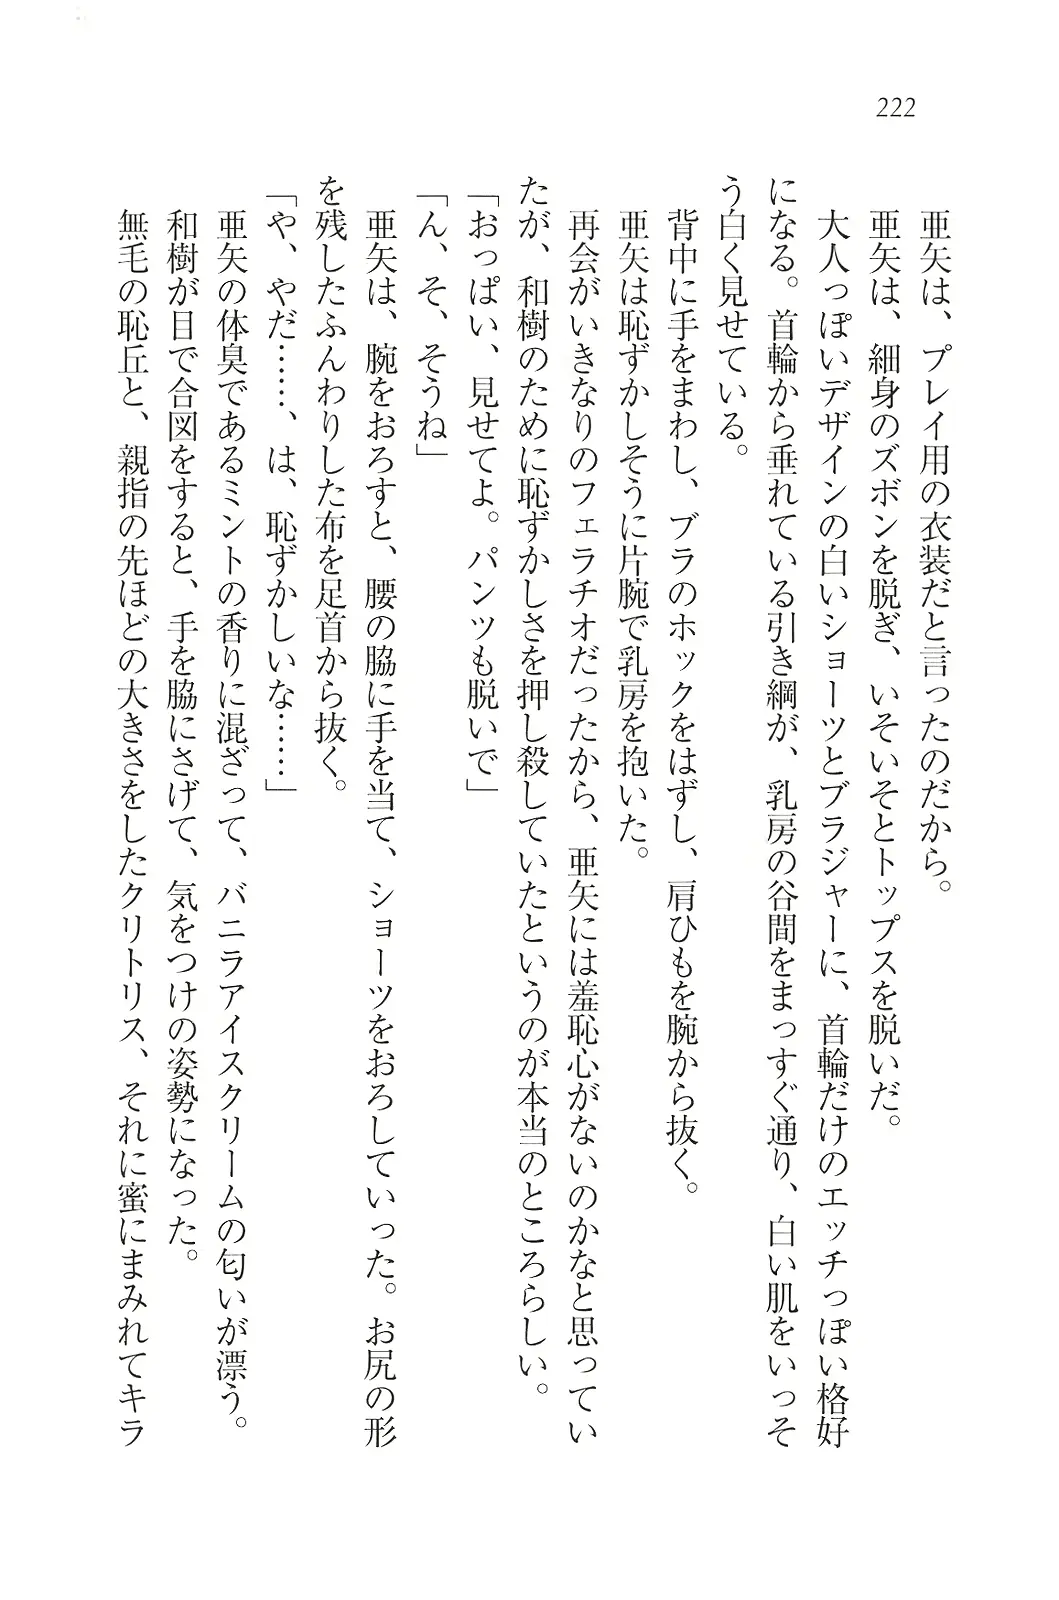 222
亜矢は、プレイ用の衣装だと言ったのだから。
亜矢は、細身のズボンを脱ぎ、いそいそとトップスを脱いだ。
大人っぽいデザインの白いショーツとブラジャーに、首輪だけのエッチっぽい格好
になる。首輪から垂れている引き綱が、乳房の谷間をまっすぐ通り、白い肌をいっそ
う白く見せている。
背中に手をまわし、ブラのホックをはずし、肩ひもを腕から抜く。
亜矢は恥ずかしそうに片腕で乳房を抱いた。
再会がいきなりのフェラチオだったから、亜矢には羞恥心がないのかなと思ってい
たが、和樹のために恥ずかしさを押し殺していたというのが本当のところらしい。
「おっぱい、見せてよ。パンツも脱いで」
「ん、そ、そうね」
亜矢は、腕をおろすと、腰の脇に手を当て、ショーツをおろしていった。お尻の形
を残したふんわりした布を足首から抜く。
「や、やだ……、は、恥ずかしいな……」
亜矢の体臭であるミントの香りに混ざって、バニラアイスクリームの匂いが漂う。
和樹が目で合図をすると、手を脇にさげて、気をつけの姿勢になった。
無毛の恥丘と、親指の先ほどの大きさをしたクリトリス、それに蜜にまみれてキラ